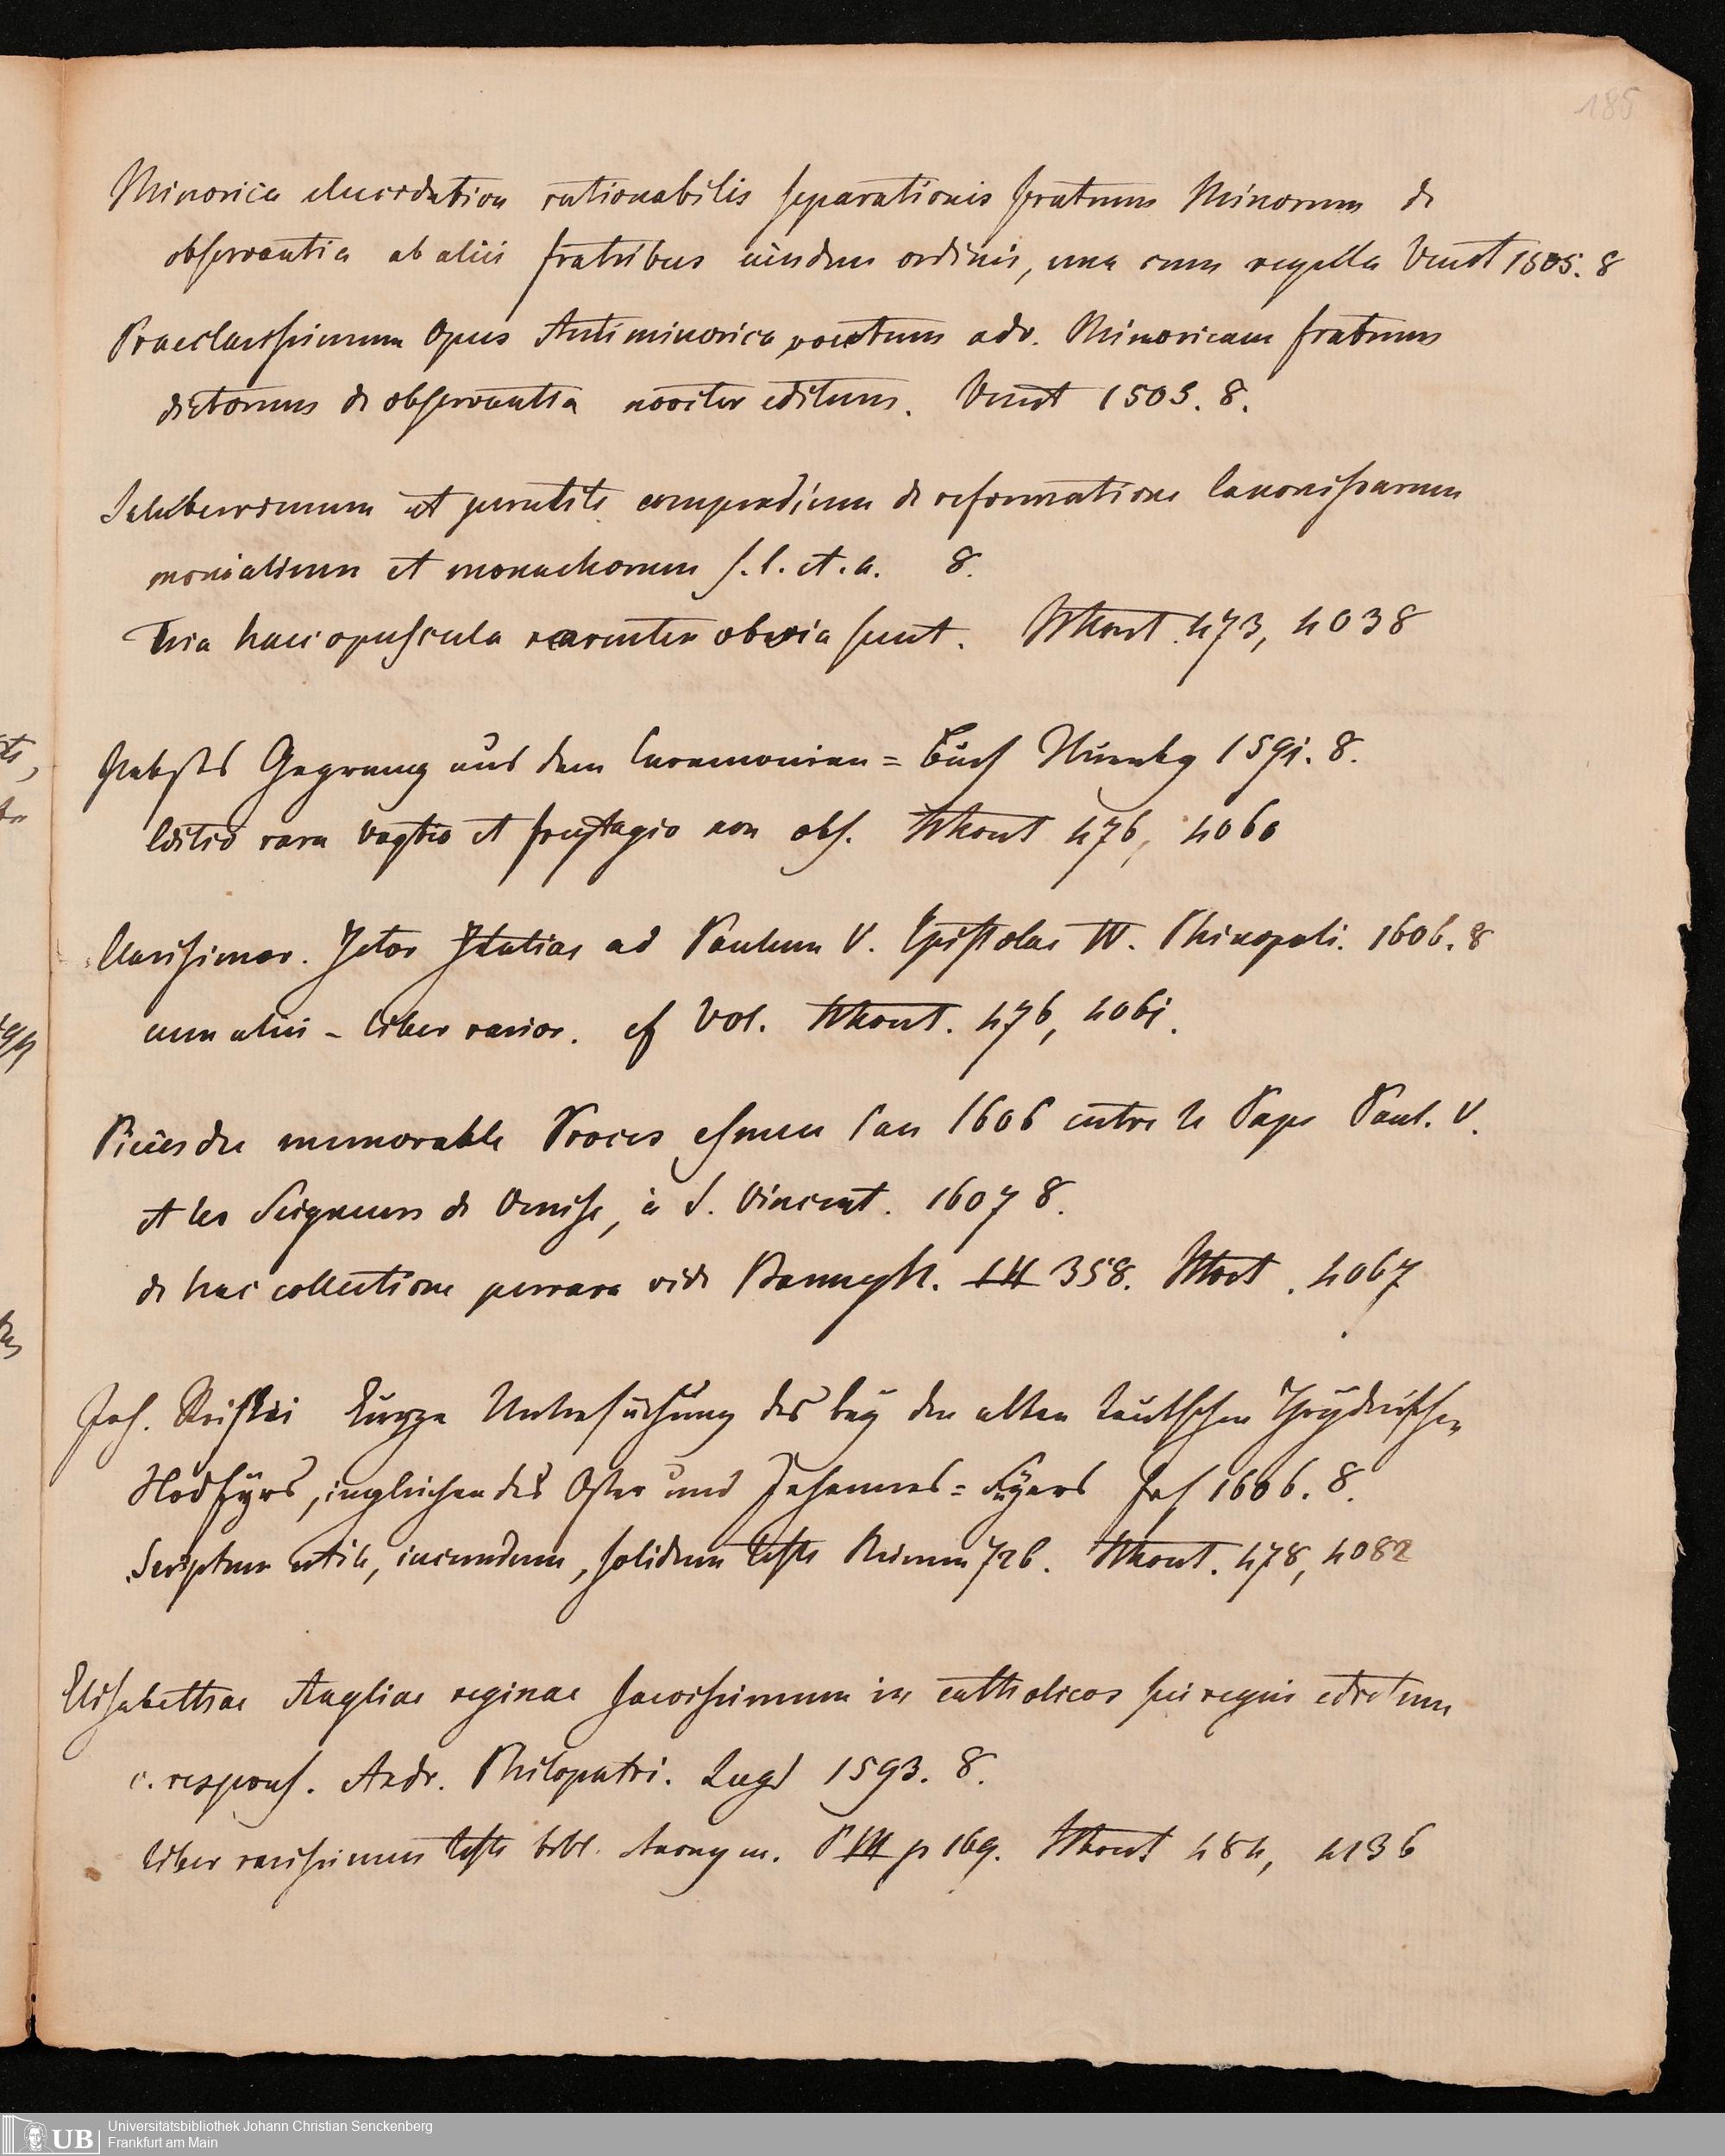 185
Minorica elucidativa rationabilis separationis fratrum Minorum de
observantia ab aliis fratribus eiusdem ordinis, una cum regella Venet 1505. 8
Praeclarissimum Opus Antiminorica vocatum adv. Minoricam fratrum
dictorum de observantia noviter editum. Venet 1503. 8.
Saluberrimum et perutile compendium de reformatione Canonissarum
monialium et monachorum s. l. et. a. 8.
Tria haec opuscula rarenter obvia sunt. 473, 4038
Pabsts Gepräng aus dem Ceremonien = Buch Nurnbg 1591. 8.
Editio rara Vogtio et Freytagio non obs. 476, 4060
Clarissimor. Jctor Italiae ad Paulum V. Epistolae IV. Rhinopoli. 1606. 8
cum aliis - liber rarior. cf Vol. 476, 4061.
Pieces du memorable Proces esmeu l'an 1606 entre le Pape Paul. V.
et les Seigneurs de Venise, à S. Vincent. 1607 8.
de hac collectione perrara vide III 358. 4067
Joh. Reiskii Kurze Untersuchung des bey den alten teutschen
Nodfyrs, ingleichen des Oster und Johannes = Fyers 1606. 8.
Scriptum utile, iucundum, solidum teste 726. 478, 4082
Elisabethae Angliae reginae saevissimum in catholicos sui regni edictum
c. respons. Andr. Philopatri. Lugd 1593. 8.
liber rarissimus teste bibl. Anonym. P III p 169. 484, 4136
Universitätsbibliothek Johann Christian Senckenberg
Frankfurt am Main
UB